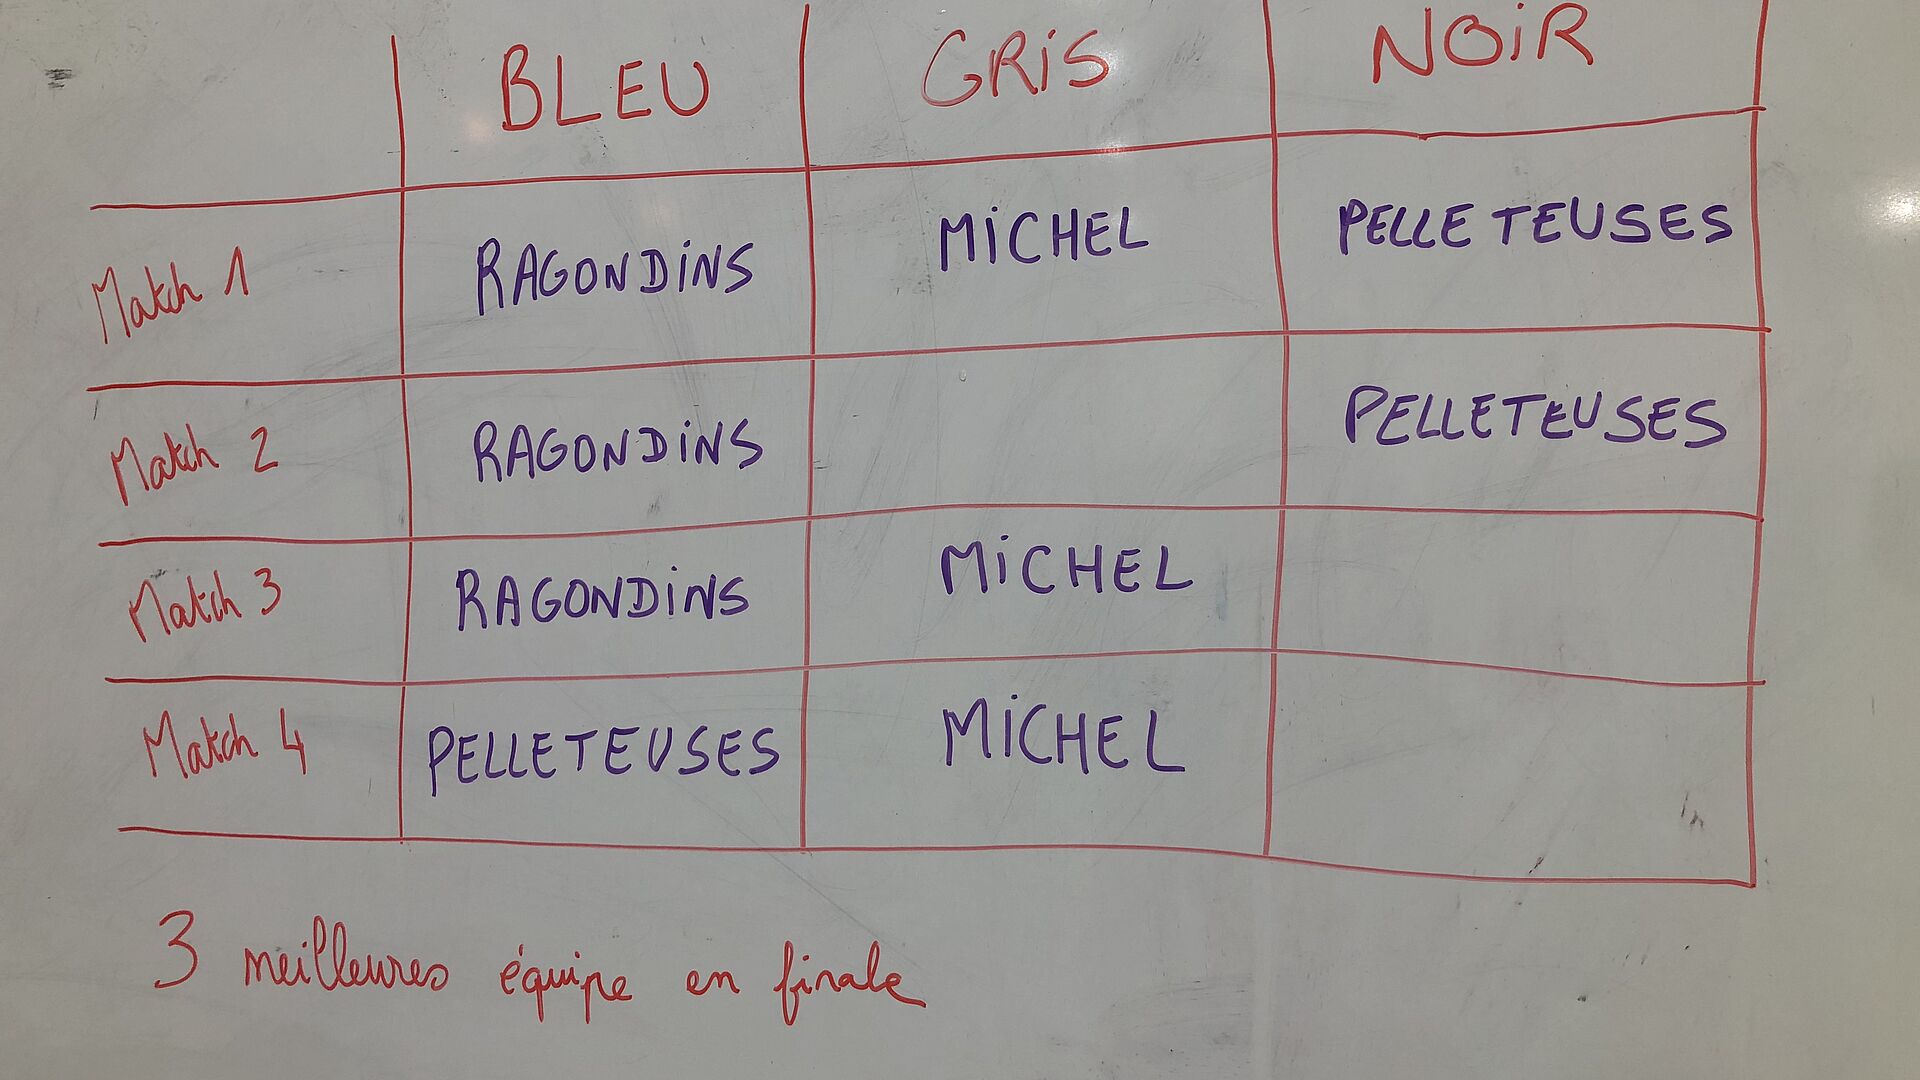 BLEU GRIS NOIR
Match 1 RAGONDINS MICHEL PELLETEUSES
Match 2 RAGONDINS PELLETEUSES
Match 3 RAGONDINS MICHEL
Match 4 PELLETEUSES MICHEL
3 meilleures équipe en finale